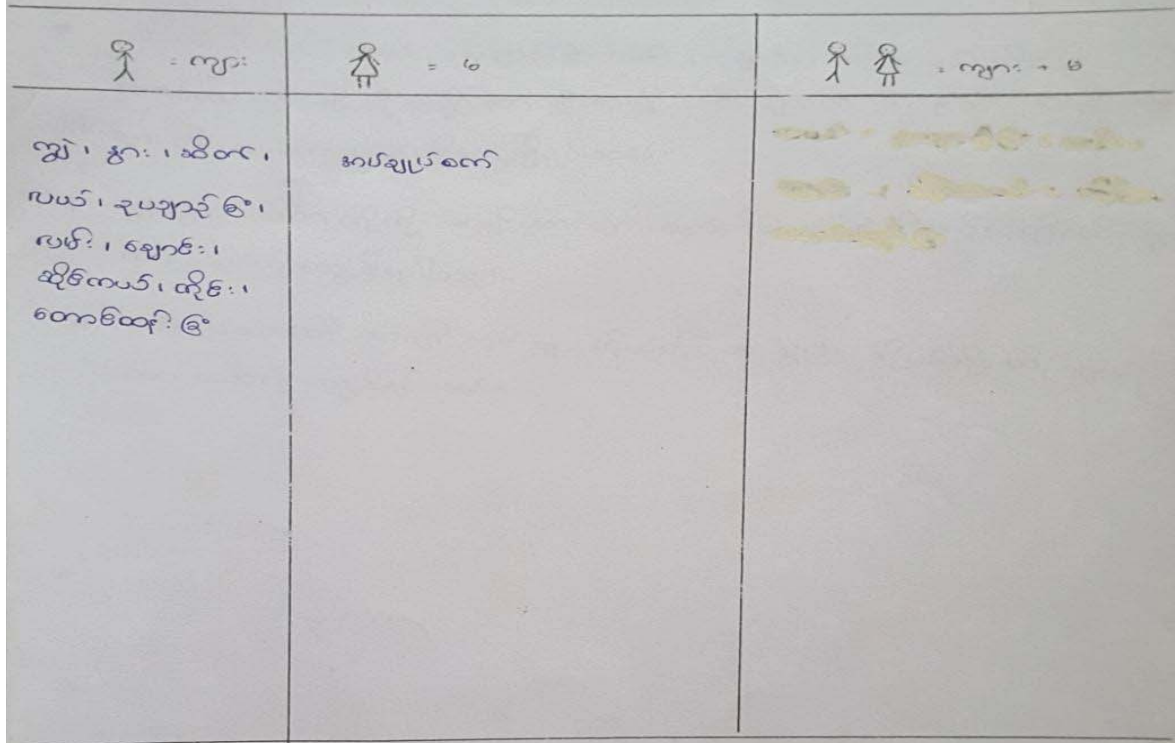 = ကျား
= မ
= ကျား + မ
ကျွဲ၊ နွား၊ ဆိတ်၊
လယ်၊ ဥယျာဉ်ခြံ၊
လမ်း၊ ချောင်း၊
ဆိုင်ကယ်၊ တိုင်း၊
တောင်ထန်းခြံ
အပ်ချုပ်စက်